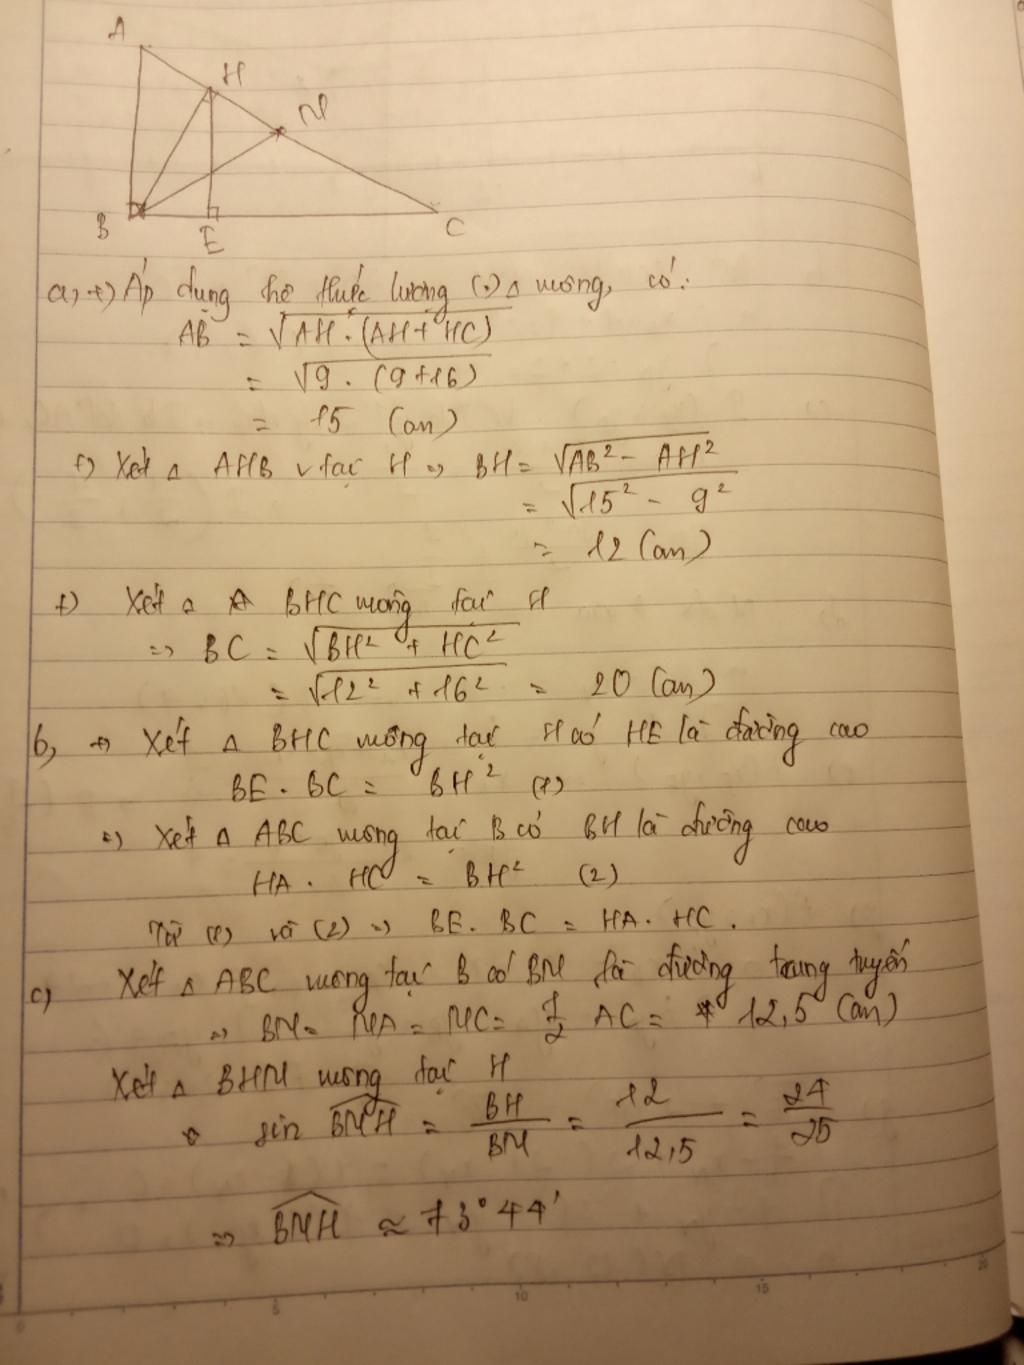 A
H
M
B
E
C
a, +) Áp dụng hệ thức lượng (.) Δ vuông, có:
AB = √AH . (AH + HC)
= √9 . (9+16)
= 15 (cm)
+) Xét Δ AHB v tại H => BH = √AB² - AH²
= √15² - 9²
= 12 (cm)
+) Xét Δ BHC vuông tại H
=> BC = √BH² + HC²
= √12² + 16² = 20 (cm)
b, +) Xét Δ BHC vuông tại H có HE là đường cao
BE . BC = BH² (1)
+) Xét Δ ABC vuông tại B có BH là đường cao
HA . HC = BH² (2)
Từ (1) và (2) => BE . BC = HA . HC .
c) Xét Δ ABC vuông tại B có BM là đường trung tuyến
=> BM = MA = MC = 1/2 AC = 12,5 (cm)
Xét Δ BHM vuông tại H
sin BMH = BH/BM = 12/12,5 = 24/25
=> BMH ≈ 73°44'
0 5 10 15 20